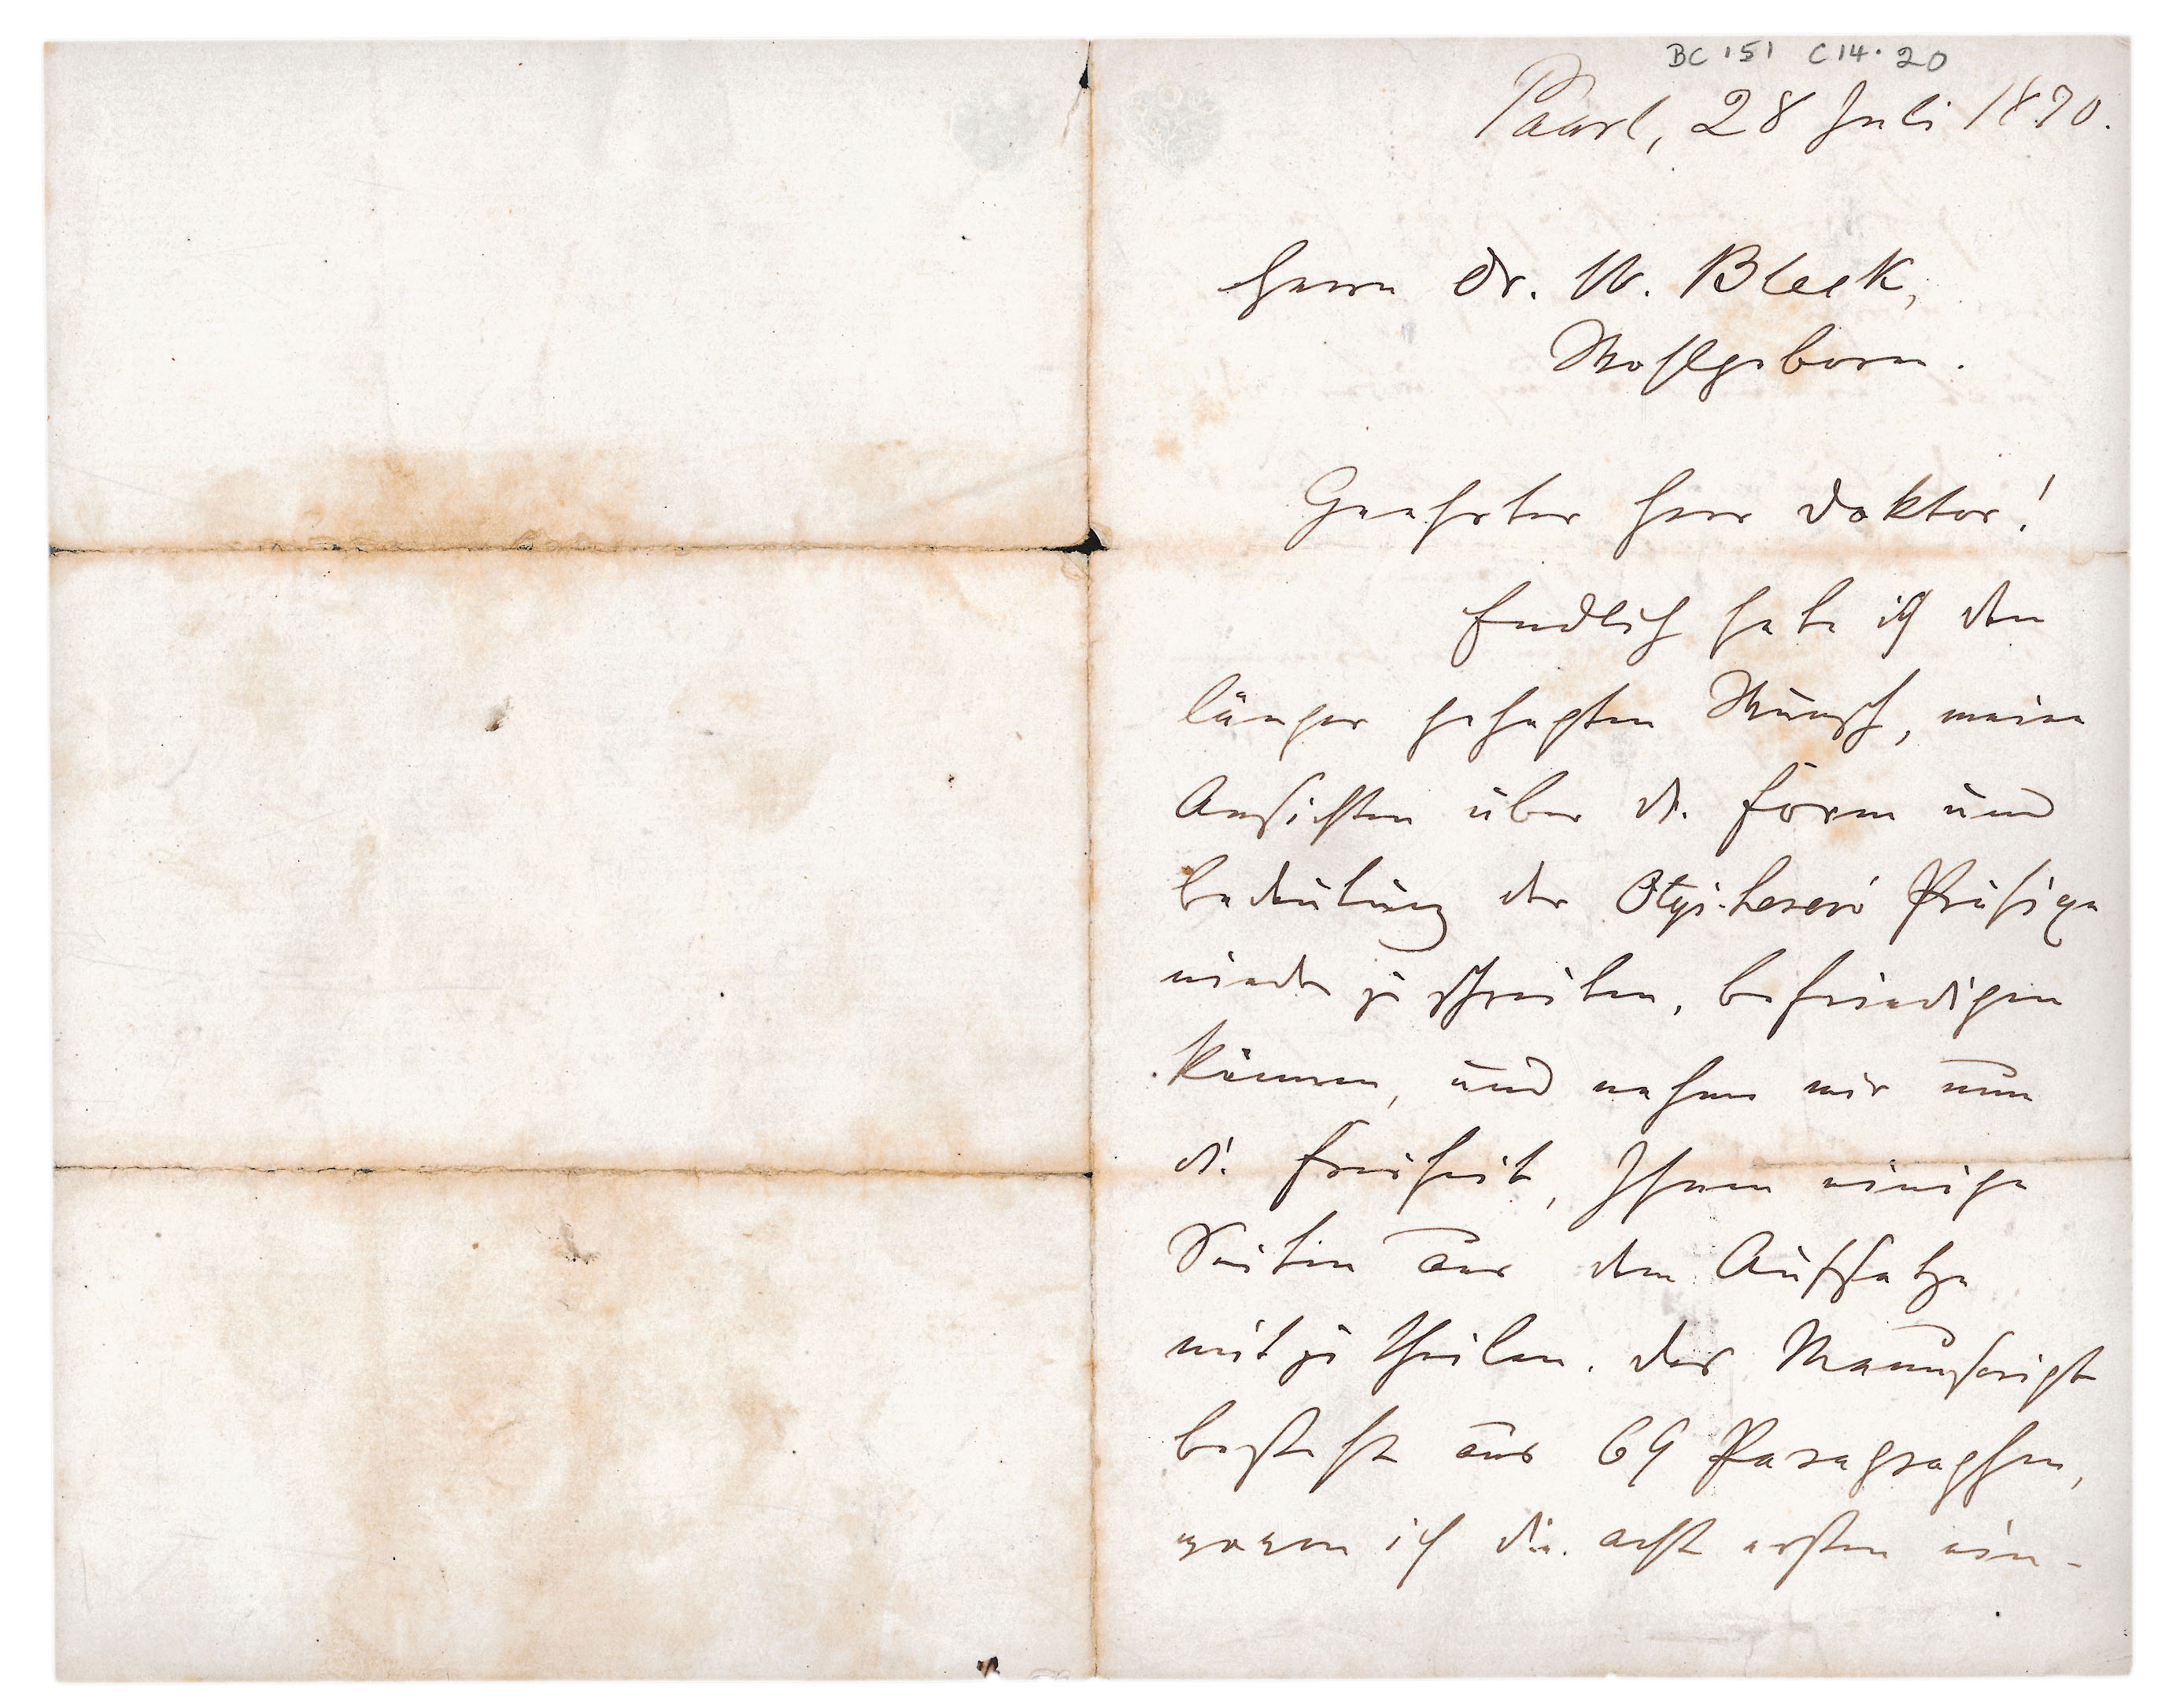 BC 151 C14.20
Paarl, 28 Juli 1870.
Herrn Dr. W. Bleek,
Wohlgeborn.
Geehrter Herr Doktor!
Endlich habe ich den
länger gehegten Wunsch, meine
Ansichten über die Form und
Bedeutung der Otyi-hereró Präfixe
nieder zu schreiben, befriedigen
können, und nehme mir nun
die Freiheit, Ihnen einige
Seiten aus dem Aufsatze
mit zu theilen. Das Manuskript
besteht aus 69 Paragraphen,
wovon ich die acht ersten ein-